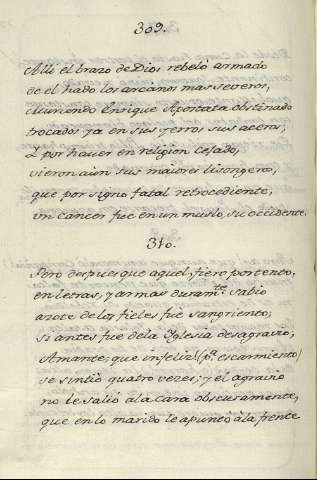 309.
Alli el brazo de Dios rebelò armado
de el hado los arcanos mas severos,
muriendo Enrique Apostata obstinado
trocados ya en sus yerros sus aceros,
Y por hauer en religion cesado,
vieron aun sus maiores lisongeros,
que por signo fatal retrocediente,
vn cancer fue en un muslo, su occidente.
310.
Pero despues que aquel, fiero portento,
en letras, y armas duramte. Sabio
azote de los fieles fue sangriento;
si antes fue de la Yglesia desagravio;
Amante; que infeliz (pa. escarmiento)
se sintiò quatro vezes; y el agravio
no le saliò a la cara obscuramente,
que en lo marido le apuntò à la frente